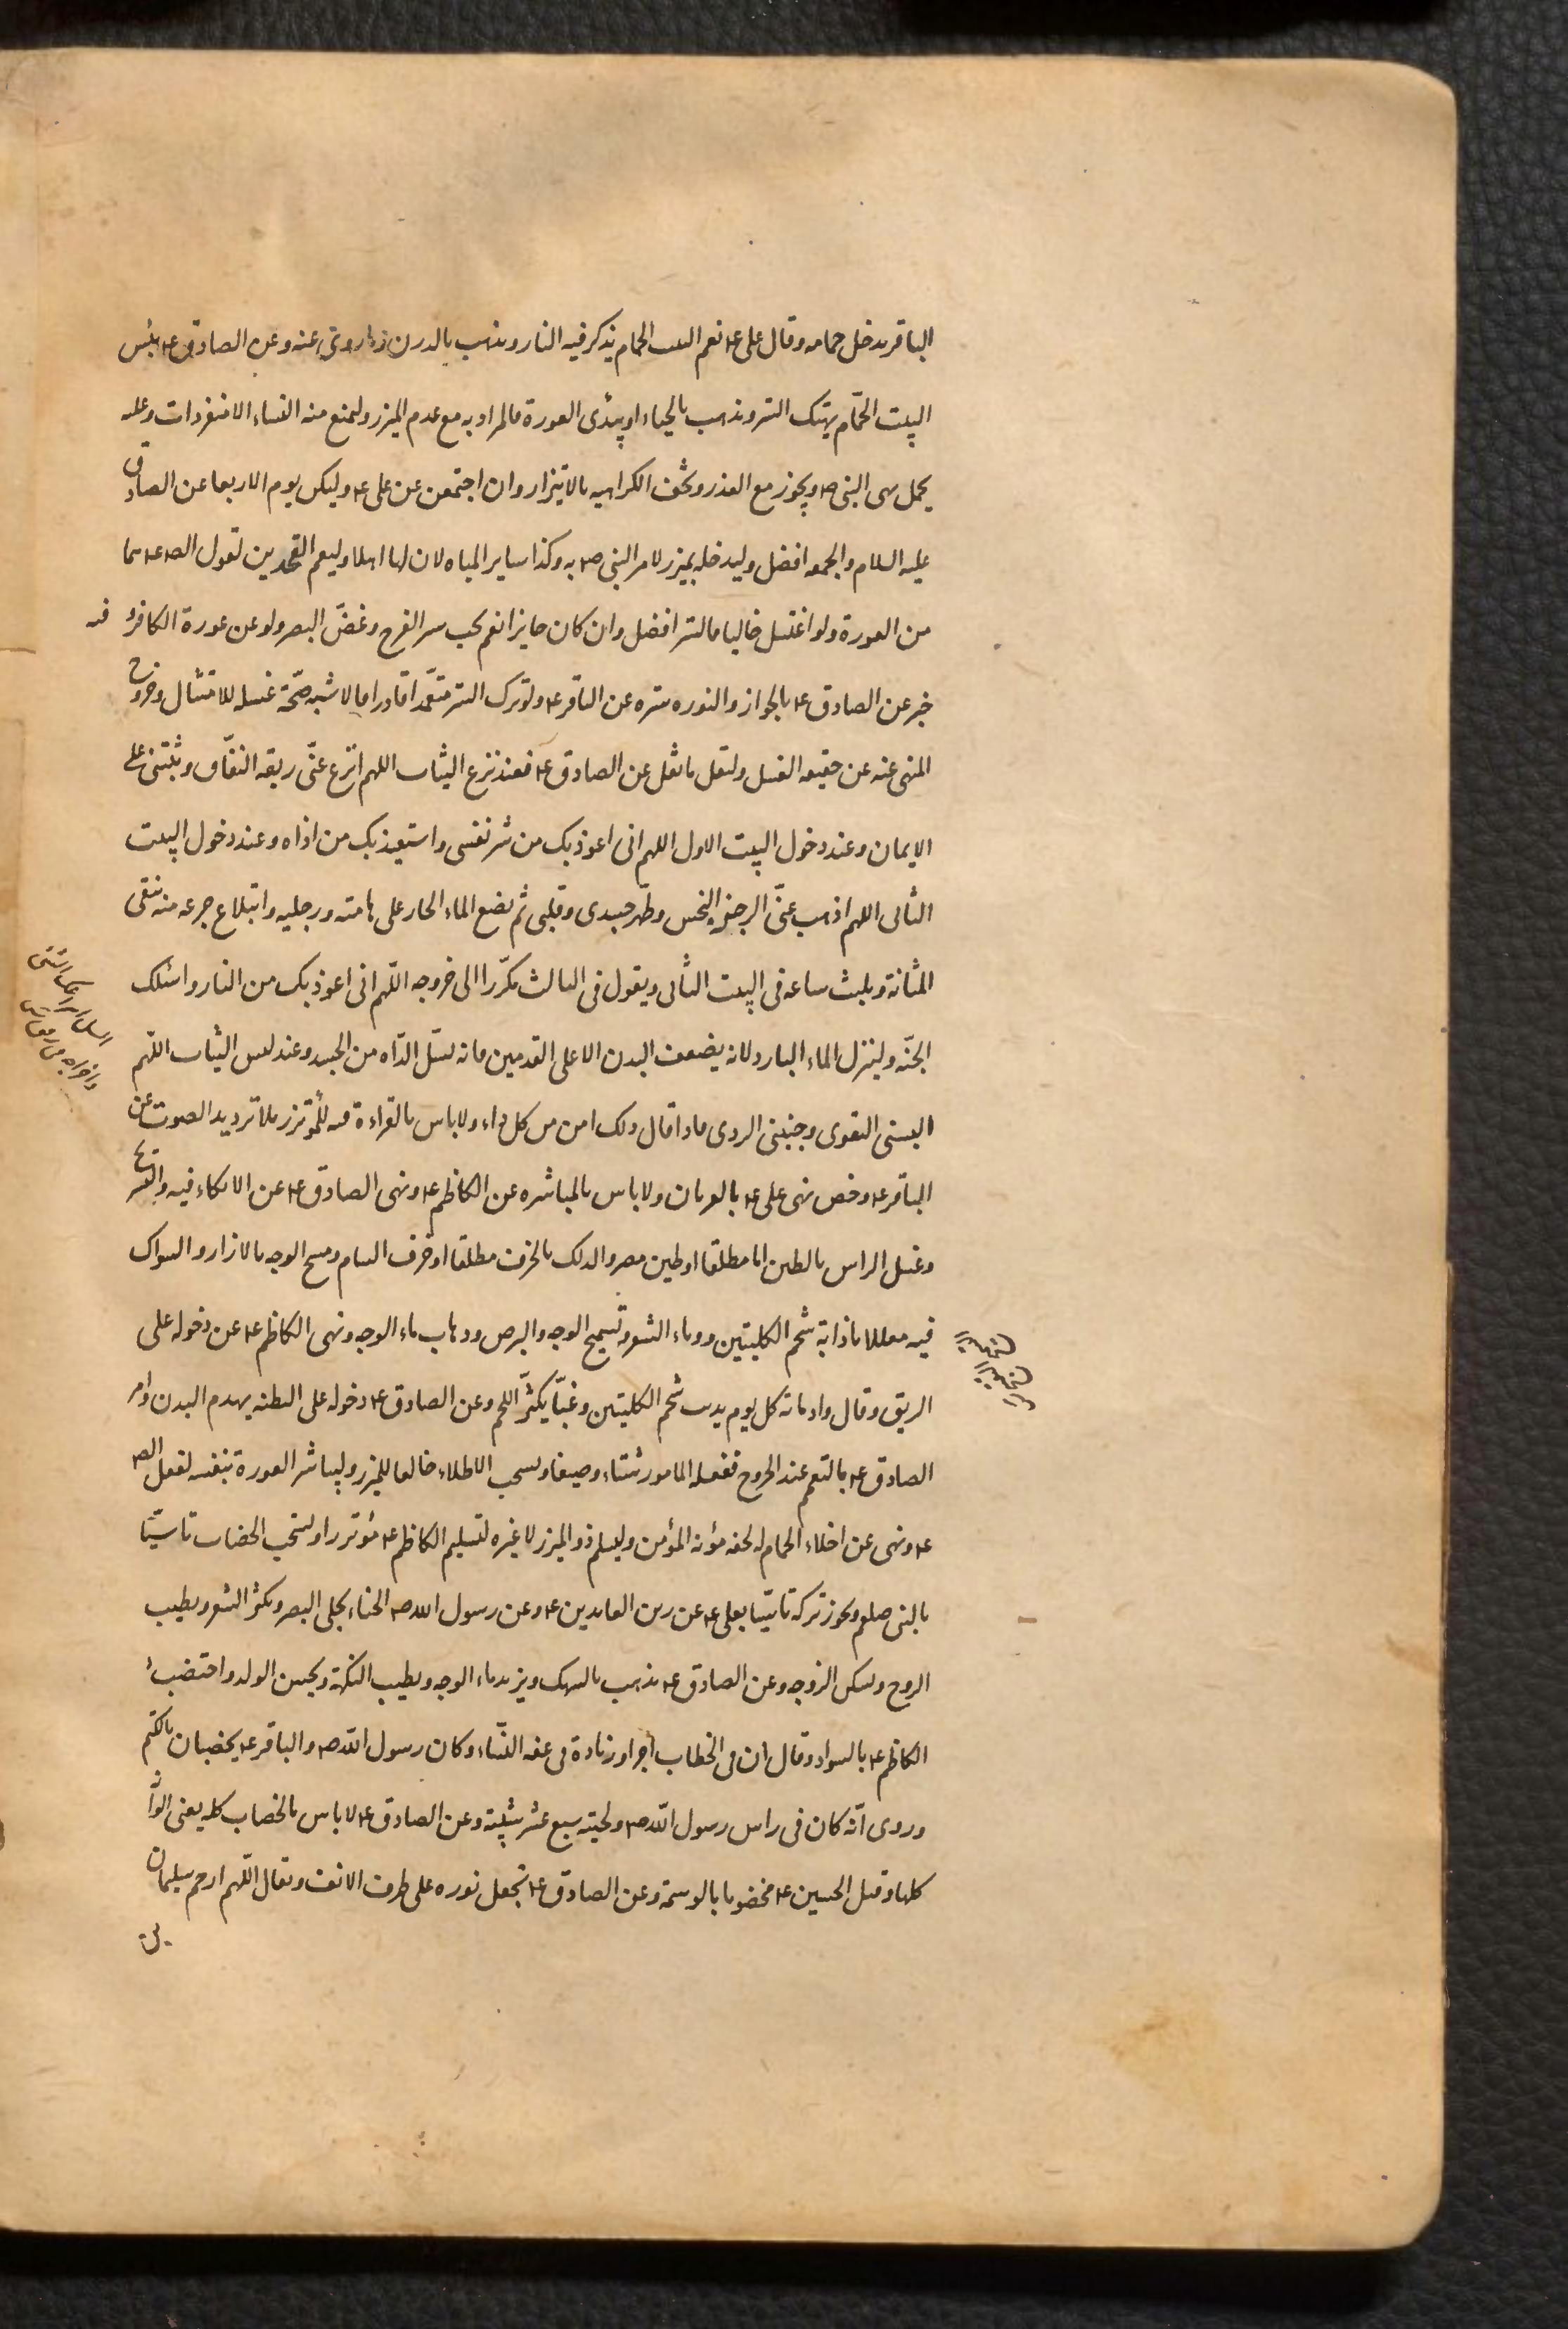 الباقر يدخل حمامه وقال على ع نعم البيت الحمام يذكر فيه النار ويذهب بالدرن وعن الصادق ع بئس
البيت الحمّام يهتك الستر ويذهب بالحياء او يبدى العورة فالمراد به مع عدم الميزر وليمنع منه النساء الا منفردات وعليه
يحمل نهى النبى ص ويجوز مع العذر وتخف الكراهيه بالايتزار وان اجتمعن عن على ع وليكن يوم الاربعا عن الصادق
عليه السلام والجمعه افضل وليدخله بميزر لامر النبى ص به وكذا ساير المياه لان لها اهلا وليعم الفخذين لقول الص ع هما
من العورة ولو اغتسل خاليا فالستر افضل وان كان جايزا نعم يجب ستر الفرج وغضّ البصر ولو عن عورة الكافر و فيه
خبر عن الصادق ع بالجواز والنوره ستره عن الباقر ع ولو ترك الستر متعمّدا قادرا فالاشبه صحّة غسله للامتثال وخروج
المنهى عنه عن حقيقه الغسل وليقل ما نقل عن الصادق ع فعند نزع الثياب اللهم انزع عنّى ربقه النفاق وثبّتنى على
الايمان وعند دخول البيت الاول اللهم انى اعوذ بك من شر نفسى واستعيذ بك من اذاه وعند دخول البيت
الثانى اللهم اذهب عنّى الرجس النجس وطهّر جسدى وقلبى ثم يضع الماء الحار على هامته ورجليه وابتلاع جرعه منه ينقى
المثانة ويلبث ساعه فى البيت الثانى ويقول فى الثالث مكرّرا الى خروجه اللّهم انى اعوذ بك من النار واسئلك
الجنّه وليترك الماء البارد لانه يضعف البدن الا على القدمين فانه يسلّ الدّاء من الجسد وعند لبس الثياب اللّهم
البسنى التقوى وجنبنى الردى فاذا قال ذلك امن من كل داء ولا باس بالقراءة فيه للمؤتزر بلا ترديد الصوت عن
الباقر ع وخص نهى على ع بالعريان ولا باس بالمباشره عن الكاظم ع ونهى الصادق ع عن الاتكاء فيه والتسريح
وغسل الراس بالطين اما مطلقا او طين مصر والدلك بالخزف مطلقا او خزف الشام ومسح الوجه بالازار والسواك
فيه معللا باذابة شحم الكليتين ووباء الشعر وتسميج الوجه والبرص وذهاب ماء الوجه ونهى الكاظم ع عن دخوله على
الريق وقال وادمانه كل يوم يذيب شحم الكليتين وغبّا يكثّر اللحم وعن الصادق ع دخوله على البطنه يهدم البدن وامر
الصادق ع بالتعمم عند الخروج ففعله المامور شتاء وصيفا ويستحب الاطلاء خالعا للميزر وليباشر العورة بنفسه لفعل الص
ع ونهى عن اخلاء الحمام له لخفه مؤنه المؤمن وليسلم ذو الميزر لا غيره لتسليم الكاظم ع مؤتزرا ويستحب الخضاب تاسّيا
بالنبى صلعم ويجوز تركه تاسّيا بعلى ع عن زين العابدين ع وعن رسول الله ص الحناء يجلى البصر ويكثر الشعر ويطيب
الروح ويسكن الزوجه وعن الصادق ع يذهب بالسهك ويزيد ماء الوجه ويطيب النكهة ويحسن الولد واختضب
الكاظم ع بالسواد وقال ان فى الخطاب اجرا وزيادة فى عفه النّساء وكان رسول اللّه ص والباقر ع يخضبان بالكتم
وروى انّه كان فى راس رسول اللّه ص ولحيته سبع عشر شيبة وعن الصادق ع لا باس بالخضاب كله يعنى الوانه
كلها وقتل الحسين ع مخضوبا بالوسمة وعن الصادق ع تجعل نوره على طرف الانف ويقال اللّهم ارحم سليمان
بن